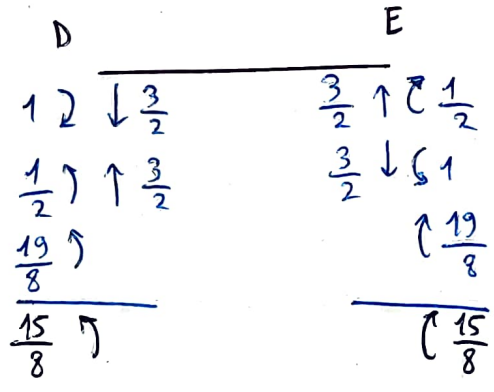 D E
1 ⤵ ↓ 3/2 3/2 ↑ ↷ 1/2
1/2 ⤴ ↑ 3/2 3/2 ↓ ⤹ 1
19/8 ⤴ ↷ 19/8
15/8 ⤴ ↷ 15/8